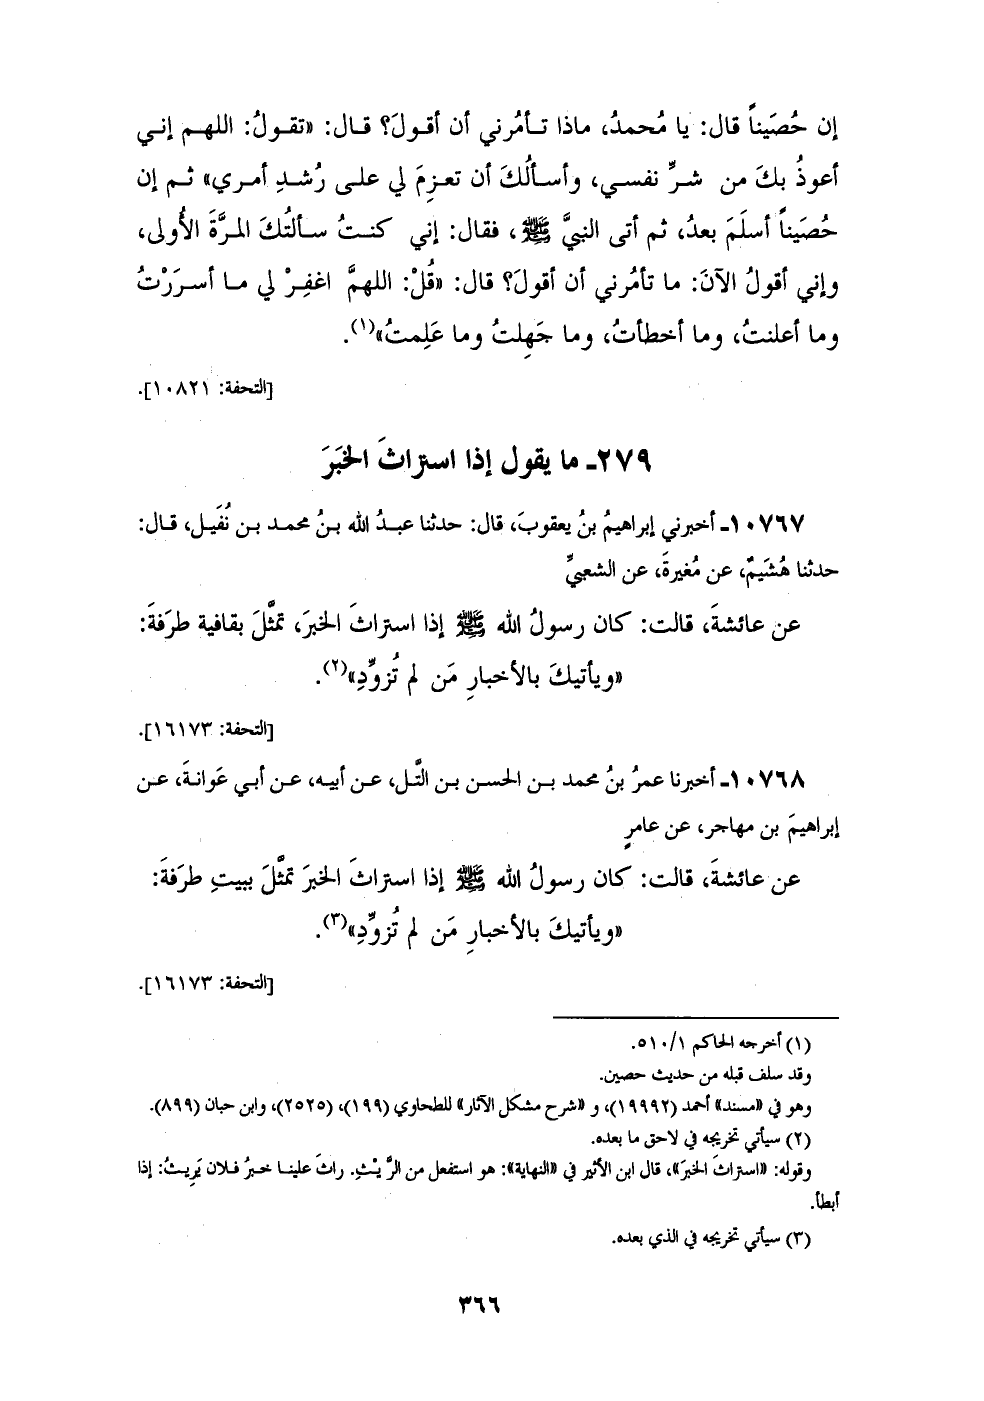 إن حُصَيناً قال: يا مُحمدُ، ماذا تـأمُرني أن أقولَ؟ قـال: «تقولُ: اللهـم إنـي
أعوذُ بكَ من شـرِّ نفسـي، وأسـألُكَ أن تعزِمَ لي علـى رُشـدِ أمري» ثـم إن
حُصَيناً أسلَمَ بعدُ، ثم أتى النبيَّ ﷺ، فقال: إني كنـتُ سـألتُكَ المرَّةَ الأُولى،
وإني أقولُ الآنَ: ما تأمُرني أن أقولَ؟ قال: «قُلْ: اللهمَّ اغفِرْ لي مـا أسـرَرْتُ
وما أعلنتُ، وما أخطأتُ، وما جَهِلتُ وما عَلِمتُ»(١).
[التحفة: ١٠٨٢١].
٢٧٩ـ ما يقول إذا استراثَ الخبَرَ
١٠٧٦٧ـ أخبرني إبراهيمُ بنُ يعقوبَ، قال: حدثنا عبـدُ الله بـنُ محمـد بـن نُفَيـل، قـال:
حدثنا هُشَيمٌ، عن مُغيرةَ، عن الشعبيِّ
عن عائشةَ، قالت: كان رسولُ الله ﷺ إذا استراثَ الخبَرَ، تمثَّلَ بقافية طرَفةَ:
«ويأتيكَ بالأخبارِ مَن لم تُزوِّدِ»(٢).
[التحفة: ١٦١٧٣].
١٠٧٦٨ـ أخبرنا عمرُ بنُ محمد بـن الحسـن بـن التَّـل، عـن أبيـه، عـن أبـي عَوانـةَ، عـن
إبراهيمَ بن مهاجر، عن عامرٍ
عن عائشةَ، قالت: كان رسولُ الله ﷺ إذا استراثَ الخبَرَ تمثَّلَ ببيتِ طرَفةَ:
«ويأتيكَ بالأخبارِ مَن لم تُزوِّدِ»(٣).
[التحفة: ١٦١٧٣].
(١) أخرجه الحاكم ٥١٠/١.
وقد سلف قبله من حديث حصين.
وهو في «مسند» أحمد (١٩٩٩٢)، و «شرح مشكل الآثار» للطحاوي (١٩٩)، (٢٥٢٥)، وابن حبان (٨٩٩).
(٢) سيأتي تخريجه في لاحق ما بعده.
وقوله: «استراثَ الخبَرَ»، قال ابن الأثير في «النهاية»: هو استفعل من الرَّيْثِ. راثَ علينـا خبـرُ فـلان يَريـثُ: إذا
أبطأ.
(٣) سيأتي تخريجه في الذي بعده.
٣٦٦